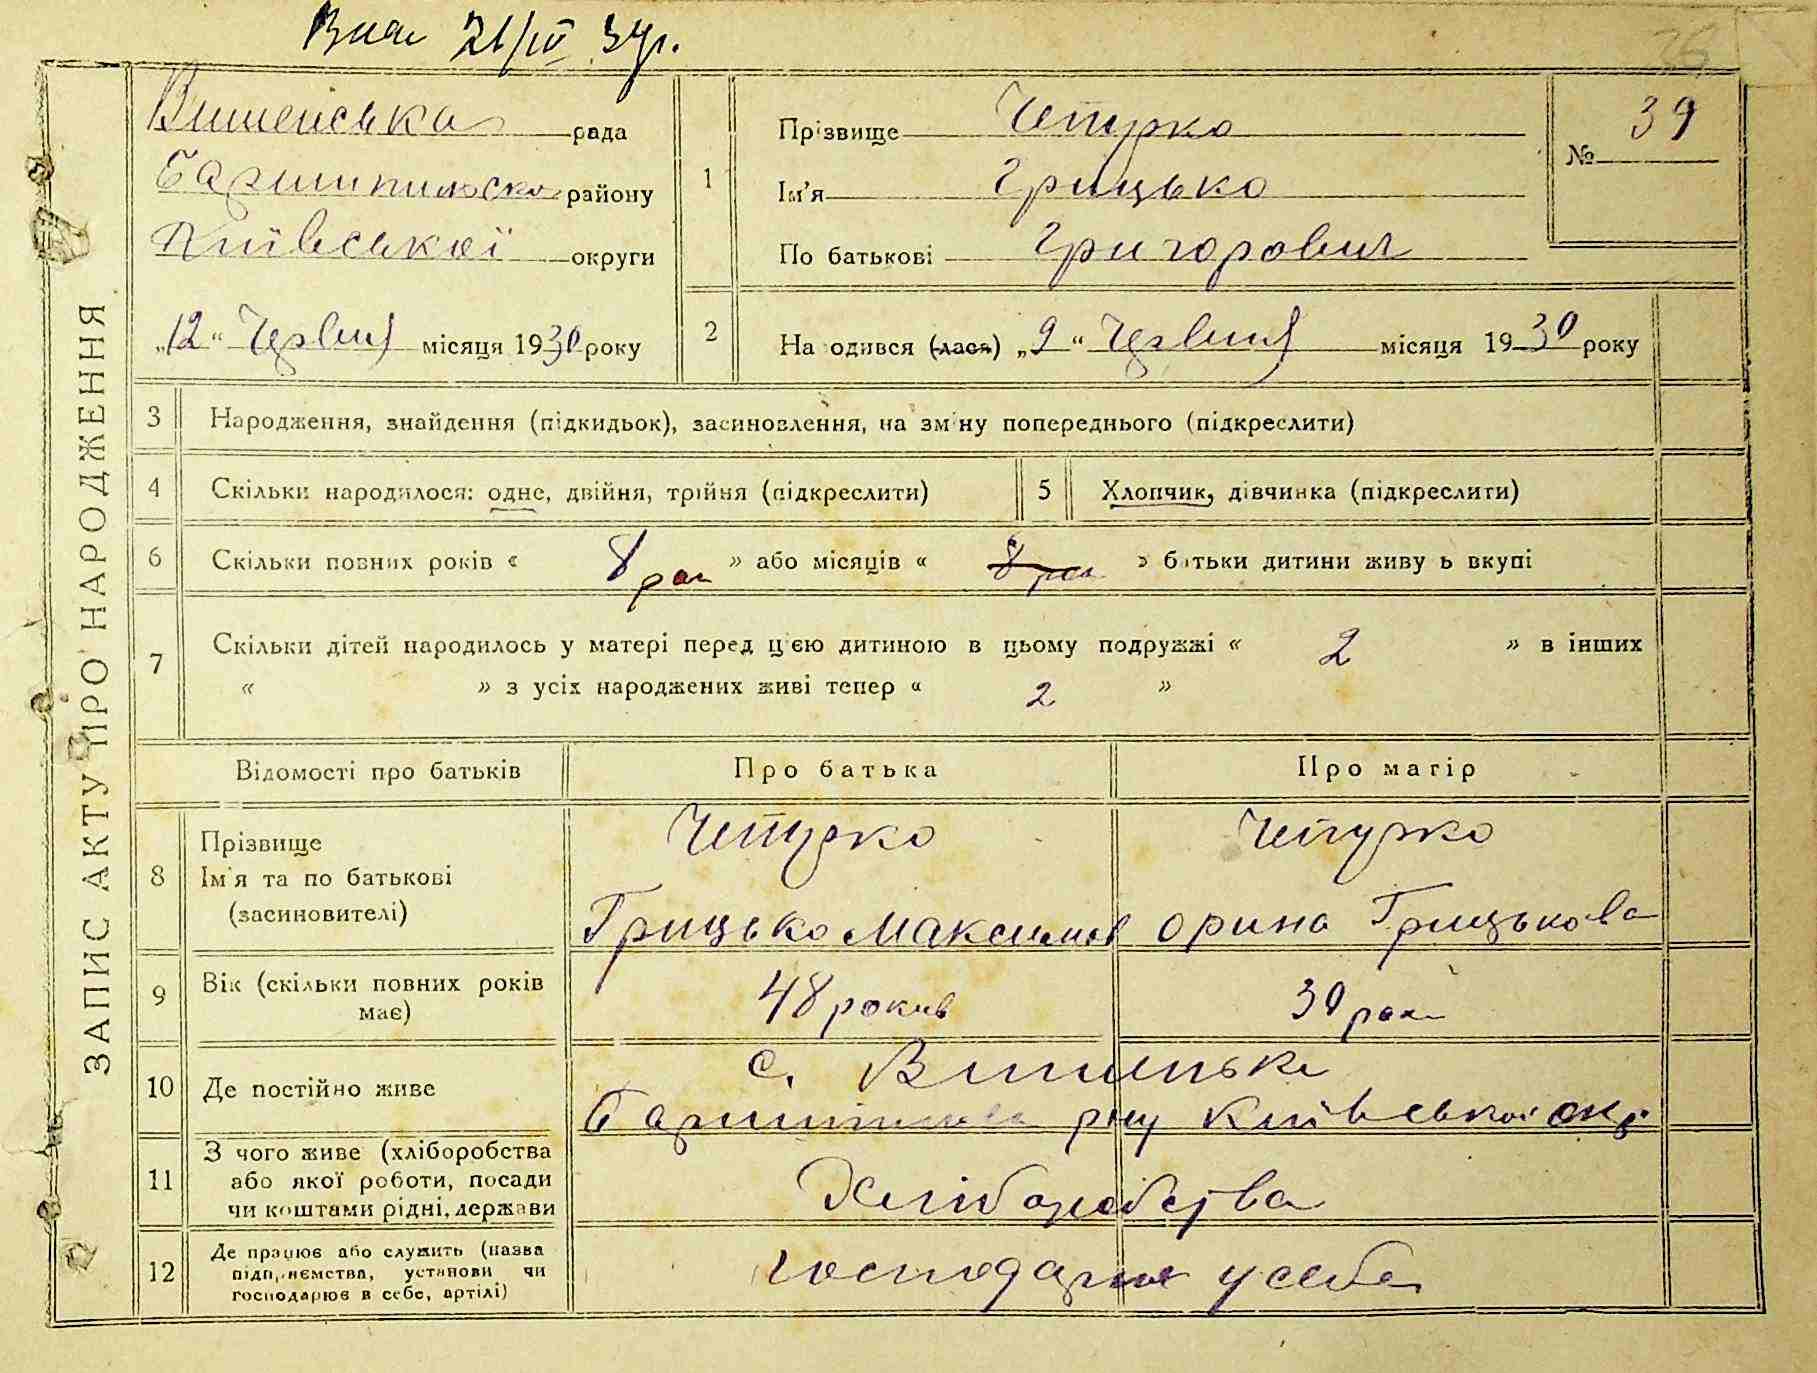 21/IV 34р.
39
ЗАПИС АКТУ ПРО НАРОДЖЕННЯ
рада
району
Київської округи
„12“ Червня місяця 1930 року
1
Прізвище Чепурко
Ім'я Грицько
По батькові Григорович
№ 39
2
На одився (лася) „9“ Червня місяця 1930 року
3 Народження, знайдення (підкидьок), засиновлення, на зміну попереднього (підкреслити)
4 Скільки народилося: одне, двійня, трійня (підкреслити) 5 Хлопчик, дівчинка (підкреслити)
6 Скільки повних років « 8 рок » або місяців « 8 рок » батьки дитини живу ь вкупі
7 Скільки дітей народилось у матері перед цією дитиною в цьому подружжі « 2 » в інших
« » з усіх народжених живі тепер « 2 »
Відомості про батьків Про батька Про матір
8 Прізвище
Ім'я та по батькові
(засиновителі)
Чепурко Чепурко
Грицько Максимов Орина Грицькова
9 Вік (скільки повних років
має)
48 роков 30 рок
10 Де постійно живе
с. Вишеньки
р-ну Київської окр.
11 З чого живе (хліборобства
або якої роботи, посади
чи коштами рідні, держави
Хліборобства
12 Де працює або служить (назва
підприємства, установи чи
господарює в себе, артілі)
господарює у себе